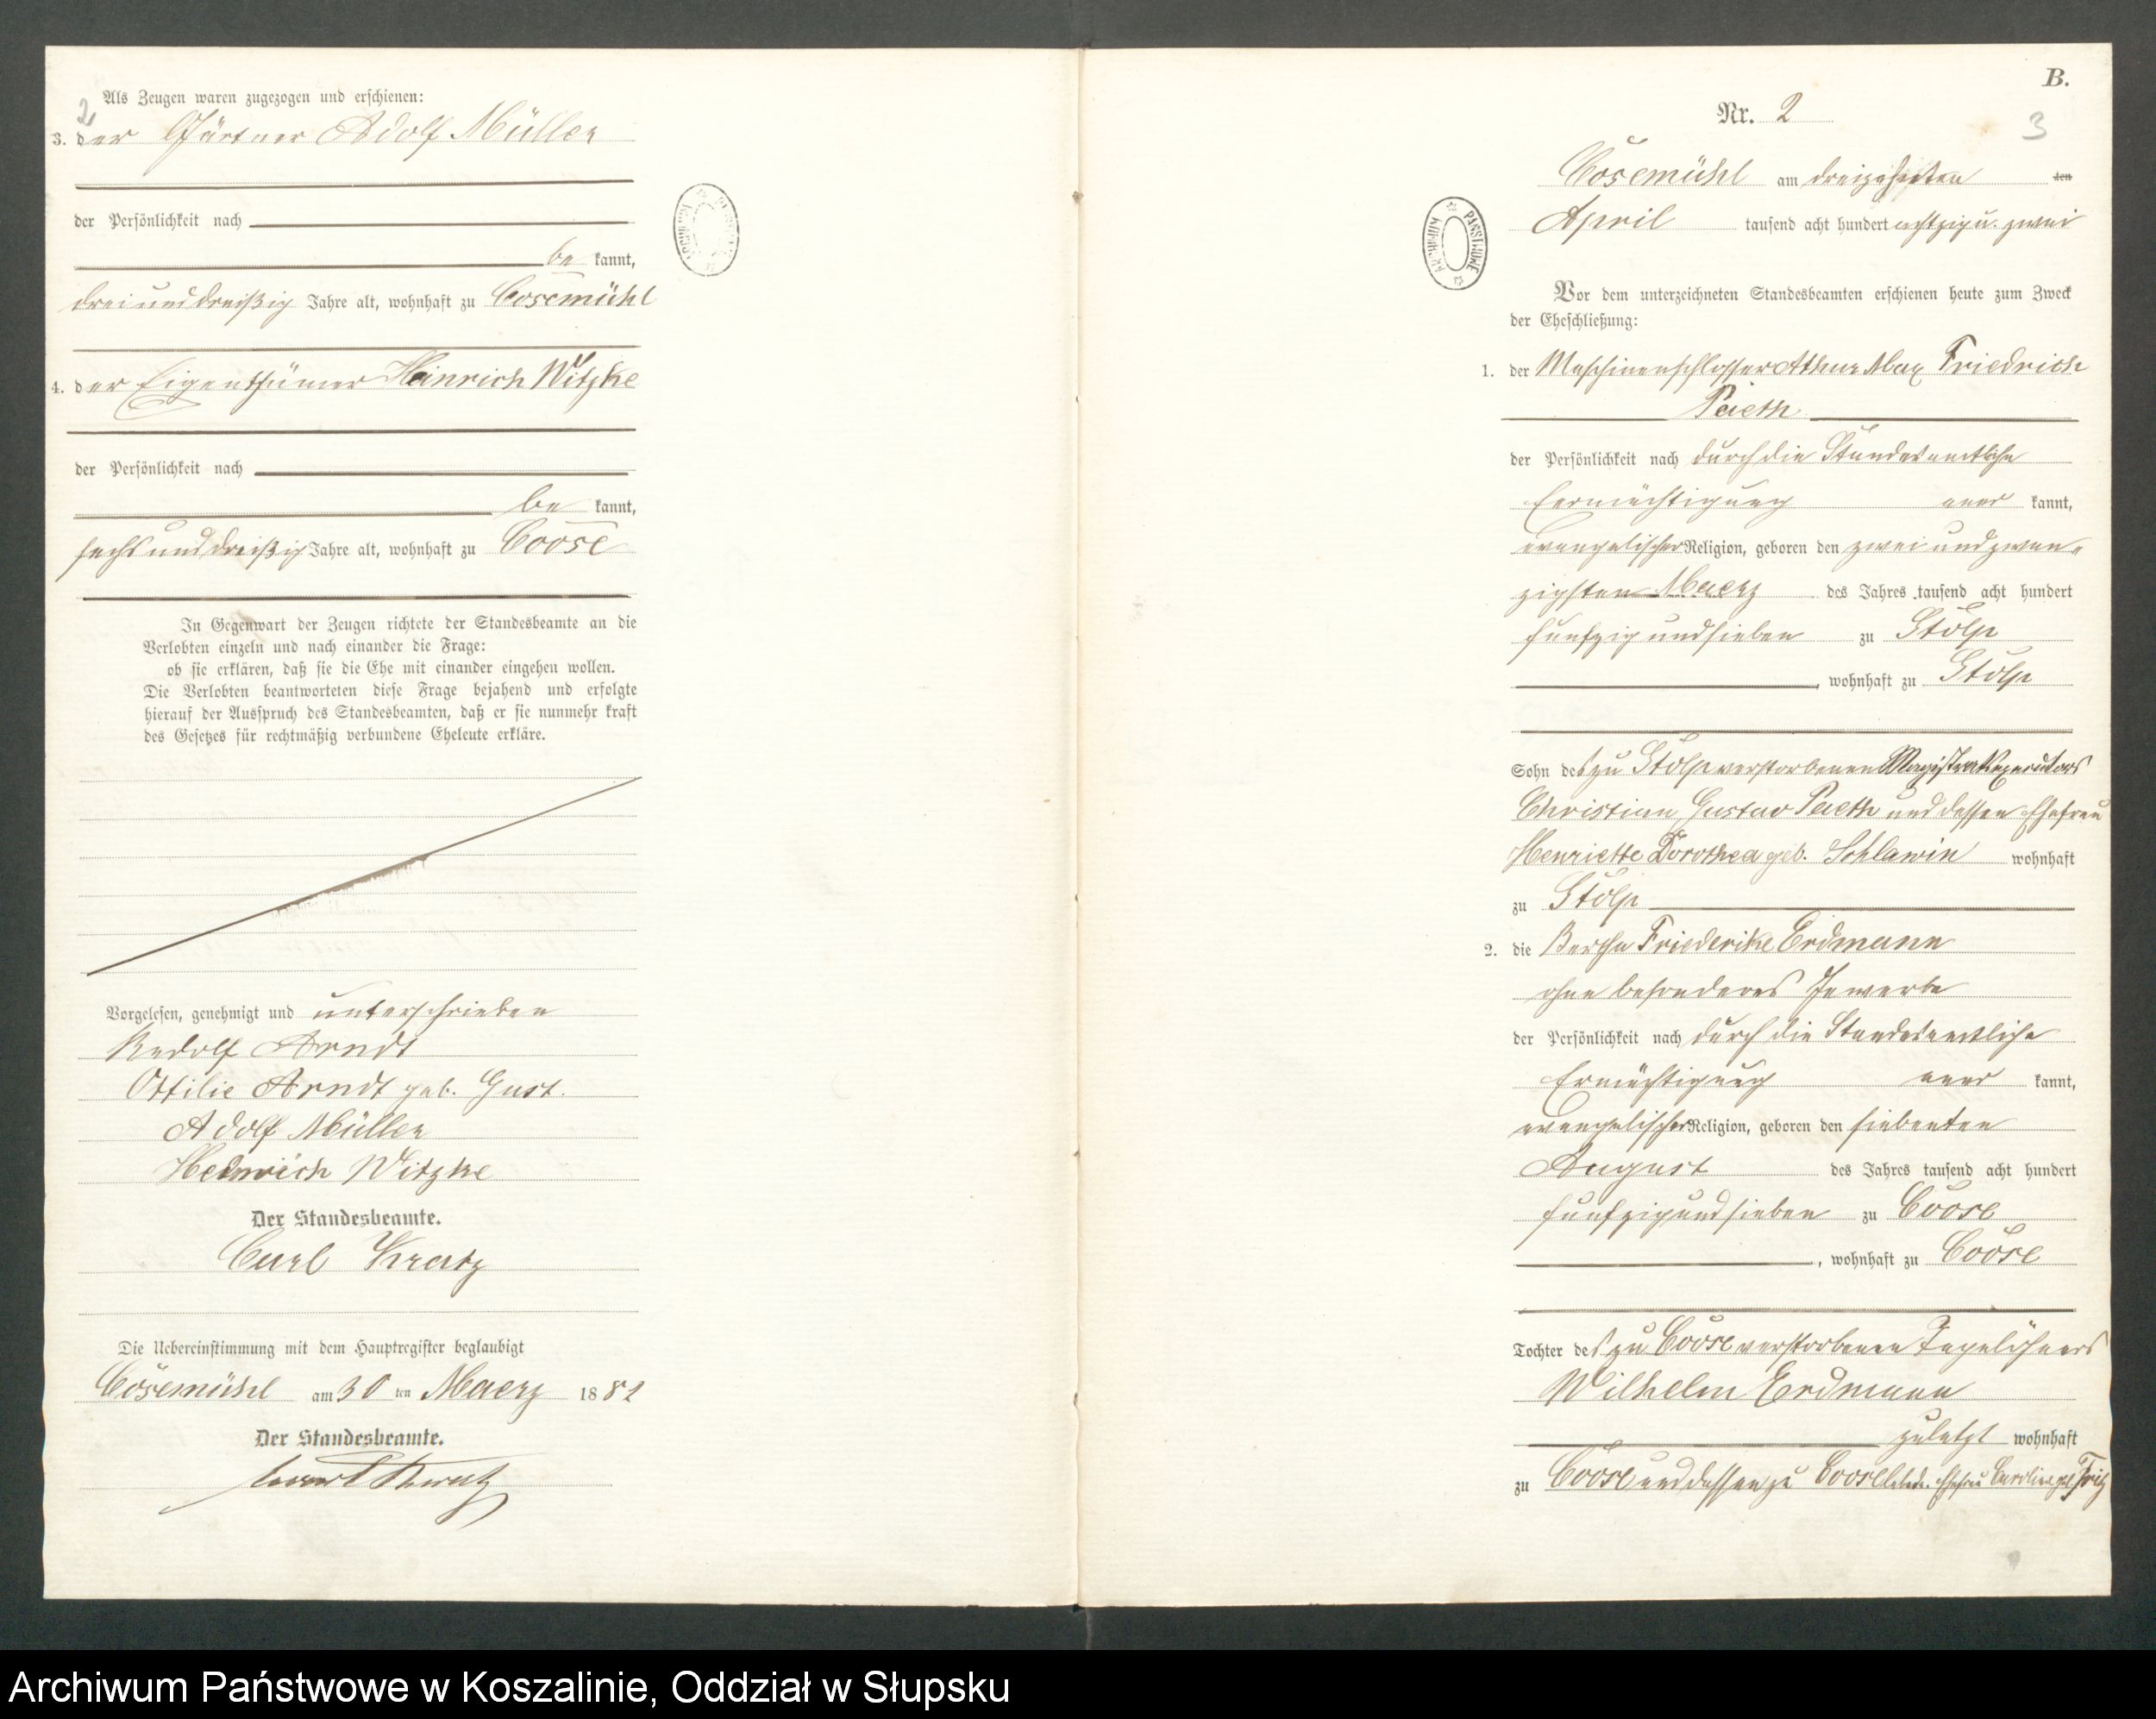 2
Als Zeugen waren zugezogen und erschienen:
3. der Gärtner Adolf Müller
der Persönlichkeit nach
be kannt,
dreiunddreißig Jahre alt, wohnhaft zu Cosemühl
4. der Eigenthümer Heinrich Witzke
der Persönlichkeit nach
be kannt,
sechsunddreißig Jahre alt, wohnhaft zu Coose
In Gegenwart der Zeugen richtete der Standesbeamte an die
Verlobten einzeln und nach einander die Frage:
ob sie erklären, daß sie die Ehe mit einander eingehen wollen.
Die Verlobten beantworteten diese Frage bejahend und erfolgte
hierauf der Ausspruch des Standesbeamten, daß er sie nunmehr kraft
des Gesetzes für rechtmäßig verbundene Eheleute erkläre.
Vorgelesen, genehmigt und unterschrieben
Rudolf Arndt
Ottilie Arndt geb. Gust.
Adolf Müller
Heinrich Witzke
Der Standesbeamte.
Carl Kratz
Die Uebereinstimmung mit dem Hauptregister beglaubigt
Cosemühl am 30 ten Maerz 1882
Der Standesbeamte.
Kratz
ARCHIWUM PAŃSTWOWE
B.
Nr. 2
3
Cosemühl am dreizehnten ten
April tausend acht hundert achtzig u. zwei
Vor dem unterzeichneten Standesbeamten erschienen heute zum Zweck
der Eheschließung:
1. der Maschinenschlosser Athur Max Friedrich
Paeth
der Persönlichkeit nach durch die Standesamtliche
Ermächtigung aner kannt,
evangelischer Religion, geboren den zwei und zwan-
zigsten Maerz des Jahres tausend acht hundert
funfzig und sieben zu Stolp
, wohnhaft zu Stolp
Sohn des zu Stolp verstorbenen Magistratsexecutors
Christian Gustav Paeth und dessen Ehefrau
Henriette Dorothea geb. Schlawin wohnhaft
zu Stolp
2. die Bertha Friederike Erdmann
ohne besonderes Gewerbe
der Persönlichkeit nach durch die Standesamtliche
Ermächtigung aner kannt,
evangelischer Religion, geboren den siebenten
August des Jahres tausend acht hundert
funfzig und sieben zu Coose
, wohnhaft zu Coose
Tochter des zu Coose verstorbenen Tagelöhners
Wilhelm Erdmann
zuletzt wohnhaft
zu Coose und dessen zu Coose Ehefrau Caroline geb. Fritz
Archiwum Państwowe w Koszalinie, Oddział w Słupsku